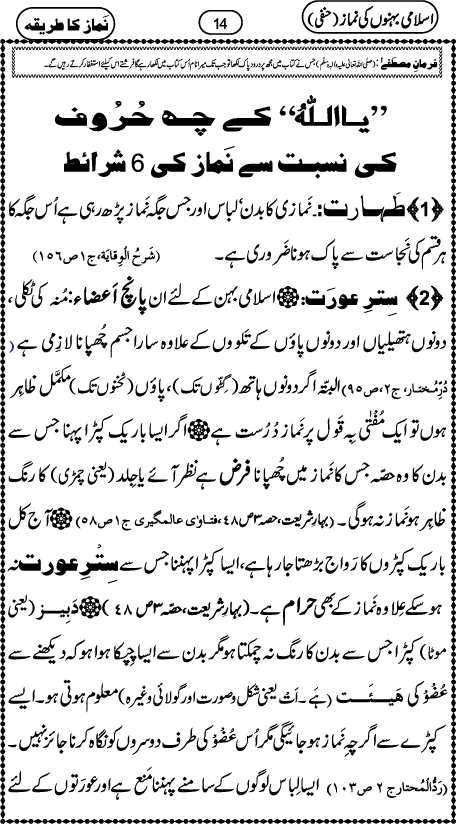 اسلامی بہنوں کی نماز (حنفی) 14 نَماز کا طریقہ
فرمانِ مصطفےٰ: (صلی اللہ تعالیٰ علیہ والہ وسلم) جس نے کتاب میں مجھ پر درود پاک لکھا تو جب تک میرا نام اُس کتاب میں لکھا رہے گا فرشتے اس کیلئے استغفار کرتے رہیں گے۔
”یااللہُ“ کے چھ حُرُوف
کی نسبت سے نَماز کی 6 شرائط
﴿1﴾ طَہارت:۔ نَمازی کا بدن، لباس اور جس جگہ نَماز پڑھ رہی ہے اُس جگہ کا
ہر قسم کی نَجاست سے پاک ہونا ضَروری ہے۔ (شَرحُ الْوِقایَة، ج۱ ص۱۵۶)
﴿2﴾ سِترِ عورت: اسلامی بہن کے لئے ان پانچ اَعضاء: مُنہ کی ٹکلی،
دونوں ہتھیلیاں اور دونوں پاؤں کے تلووں کے علاوہ سارا جسم چُھپانا لازِمی ہے (
دُرِّمُختار، ج۲، ص۹۵) البتّہ اگر دونوں ہاتھ (گِٹّوں تک)، پاؤں (ٹخنوں تک) مکمَّل ظاہِر
ہوں تو ایک مُفْتٰی بِہٖ قَول پر نَماز دُرُست ہے اگر ایسا باریک کپڑا پہنا جس سے
بدن کا وہ حصّہ جس کا نَماز میں چُھپانا فرض ہے نظر آئے یا جِلد (یعنی چمڑی) کا رنگ
ظاہِر ہو نَماز نہ ہوگی۔ (بہارِشریعت، حصہ ۳ ص۴۸، فتاوٰی عالمگیری ج۱ ص۵۸) آج کل
باریک کپڑوں کا رَواج بڑھتا جا رہا ہے، ایسا کپڑا پہننا جس سے سِتْرِ عورت نہ
ہو سکے عِلاوہ نَماز کے بھی حرام ہے۔ (بہارِ شریعت، حصّہ ۳ ص ۴۸) دَبِیز (یعنی
موٹا) کپڑا جس سے بدن کا رنگ نہ چمکتا ہو مگر بدن سے ایسا چِپکا ہوا ہو کہ دیکھنے سے
عُضْوْ کی ھَیْئَت (ہَے۔ اَت یعنی شکل و صورت اور گولائی وغیرہ) معلوم ہوتی ہو۔ ایسے
کپڑے سے اگرچِہ نَماز ہو جائیگی مگر اُس عُضْوْ کی طرف دوسروں کو نگاہ کرنا جائز نہیں۔
(رَدُّالْمُحتار ج ۲ ص۱۰۳) ایسا لباس لوگوں کے سامنے پہننا مَنع ہے اور عورتوں کے لئے